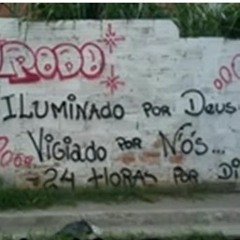 RODO
ILUMINADO POR DEUS
VIGIADO POR NÓS...
24 HORAS POR DI